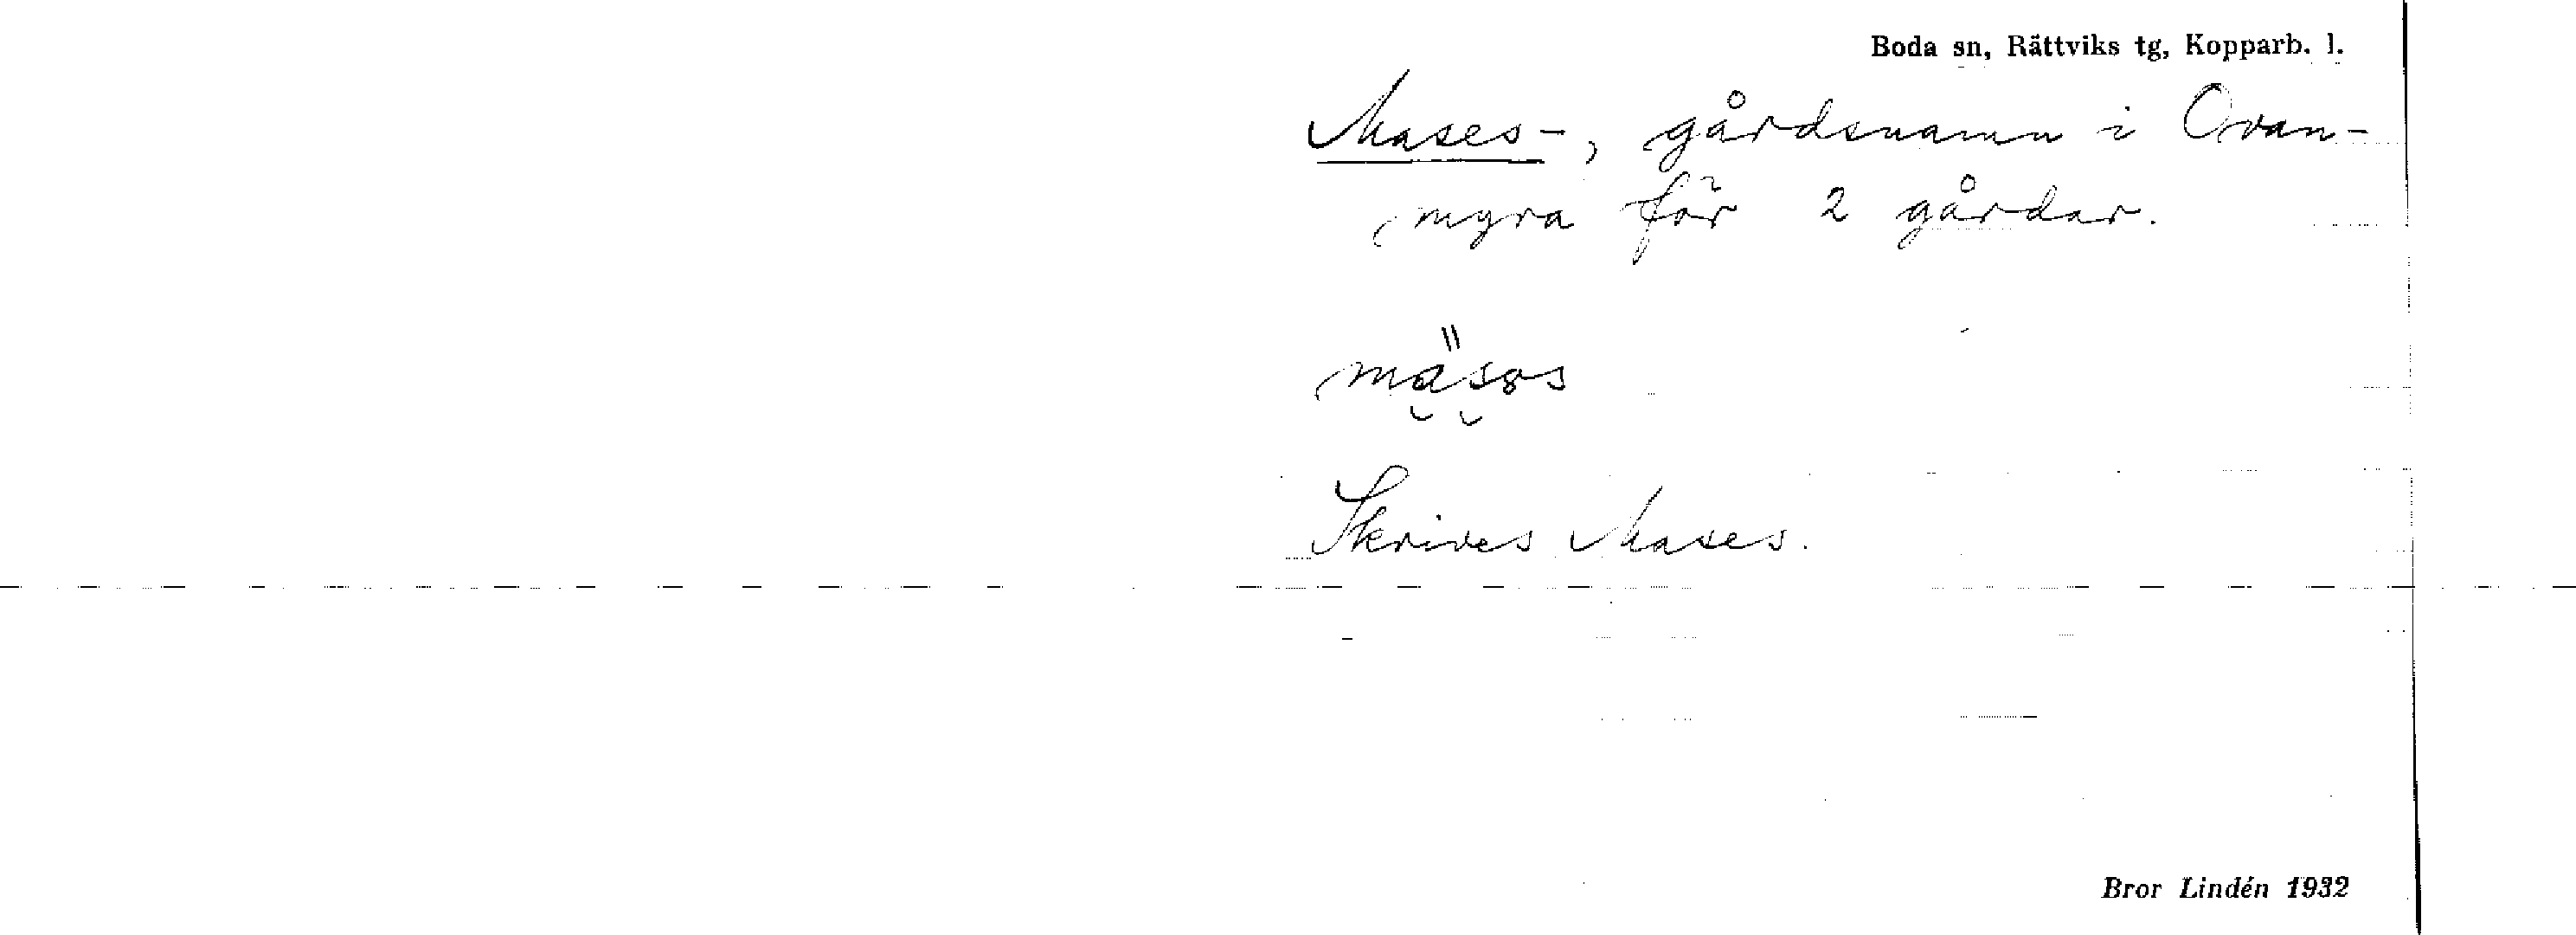 Boda sn, Rättviks tg, Kopparb. l.
Mases-, gårdsnamn i Ovan-
myra för 2 gårdar.
Skrives Mases.
Bror Lindén 1932